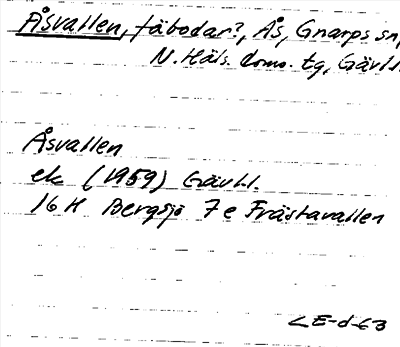 Åsvallen, fäbodar?, Ås, Gnarps sn,
N. Häls. doms. tg, Gävl.
Åsvallen
ek (1959) Gävl.l.
16 H Bergsjö 7 e Frästavallen
LE-d-63